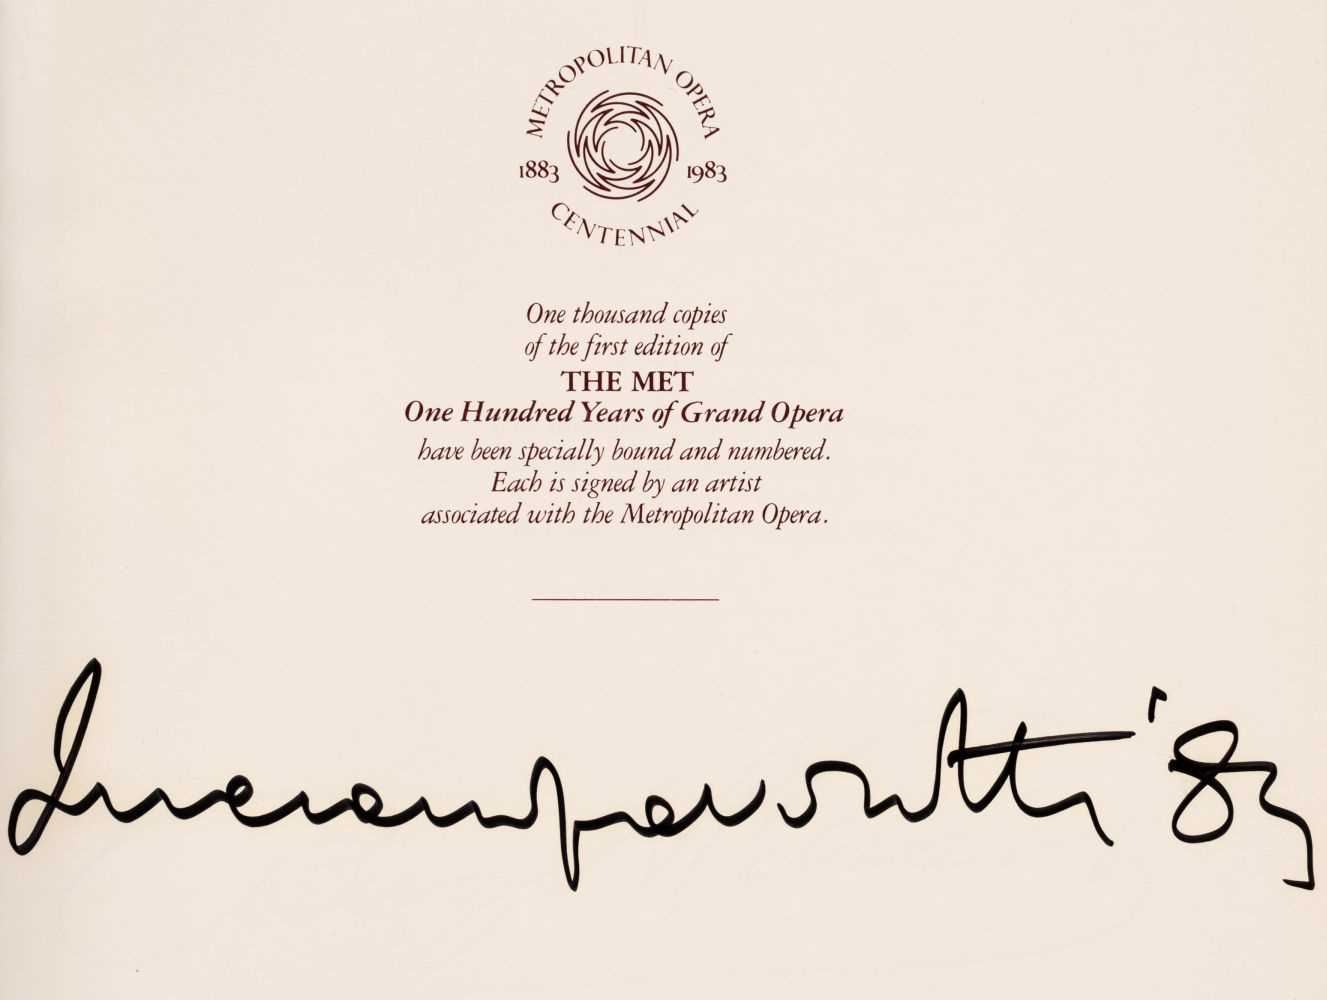 METROPOLITAN OPERA
1883 1983
CENTENNIAL
One thousand copies
of the first edition of
THE MET
One Hundred Years of Grand Opera
have been specially bound and numbered.
Each is signed by an artist
associated with the Metropolitan Opera.
Luciano Pavarotti '83